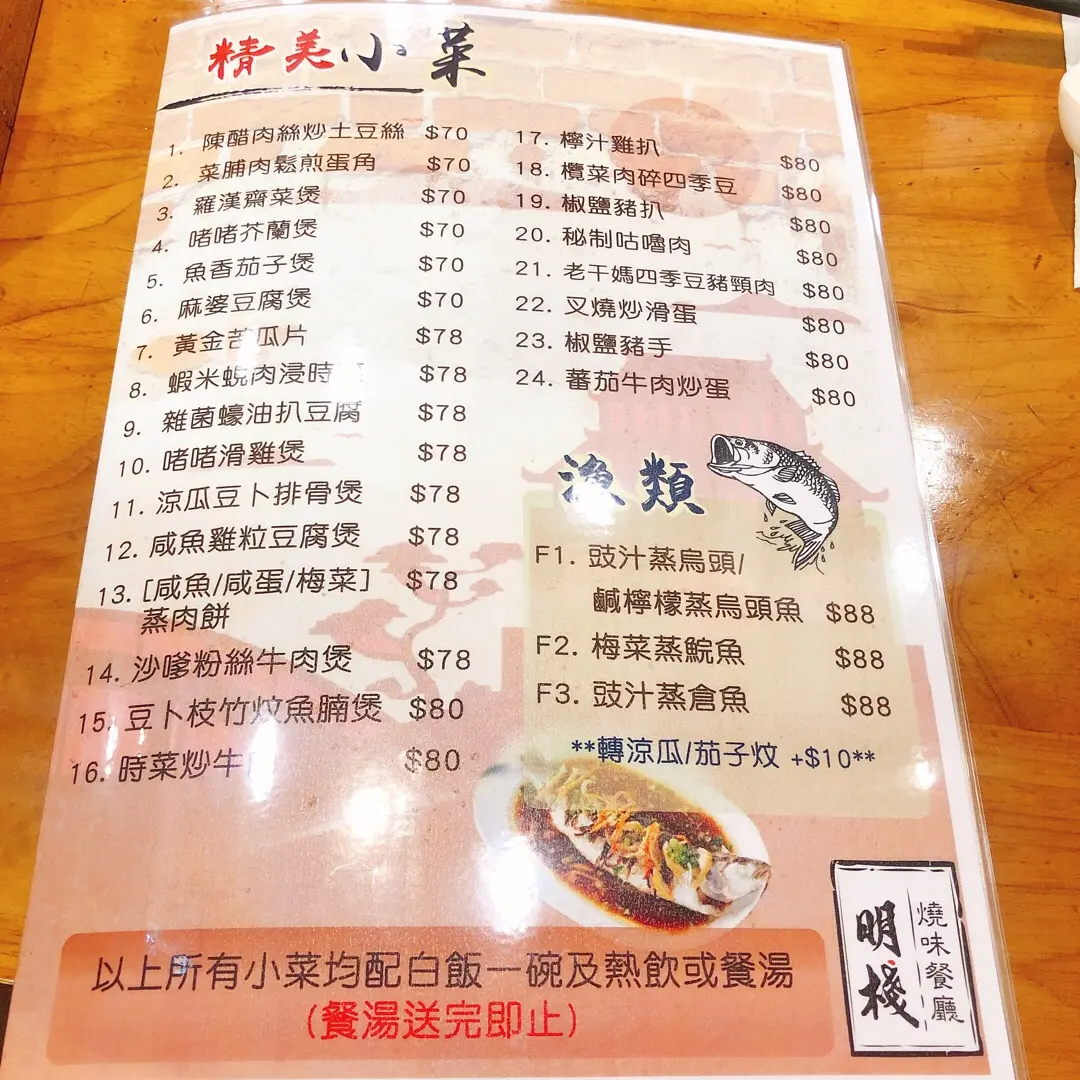 精美小菜
1. 陳醋肉絲炒土豆絲 $70
2. 菜脯肉鬆煎蛋角 $70
3. 羅漢齋菜煲 $70
4. 啫啫芥蘭煲 $70
5. 魚香茄子煲 $70
6. 麻婆豆腐煲 $70
7. 黃金苦瓜片 $78
8. 蝦米蜆肉浸時 $78
9. 雜菌蠔油扒豆腐 $78
10. 啫啫滑雞煲 $78
11. 涼瓜豆卜排骨煲 $78
12. 咸魚雞粒豆腐煲 $78
13. [咸魚/咸蛋/梅菜] $78
蒸肉餅
14. 沙嗲粉絲牛肉煲 $78
15. 豆卜枝竹炆魚腩煲 $80
16. 時菜炒牛 $80
17. 檸汁雞扒 $80
18. 欖菜肉碎四季豆 $80
19. 椒鹽豬扒 $80
20. 秘制咕嚕肉 $80
21. 老干媽四季豆豬頸肉 $80
22. 叉燒炒滑蛋 $80
23. 椒鹽豬手 $80
24. 蕃茄牛肉炒蛋 $80
漁類
F1. 豉汁蒸烏頭/
鹹檸檬蒸烏頭魚 $88
F2. 梅菜蒸鯇魚 $88
F3. 豉汁蒸倉魚 $88
**轉涼瓜/茄子炆 +$10**
以上所有小菜均配白飯一碗及熱飲或餐湯
(餐湯送完即止)
明棧
燒味餐廳